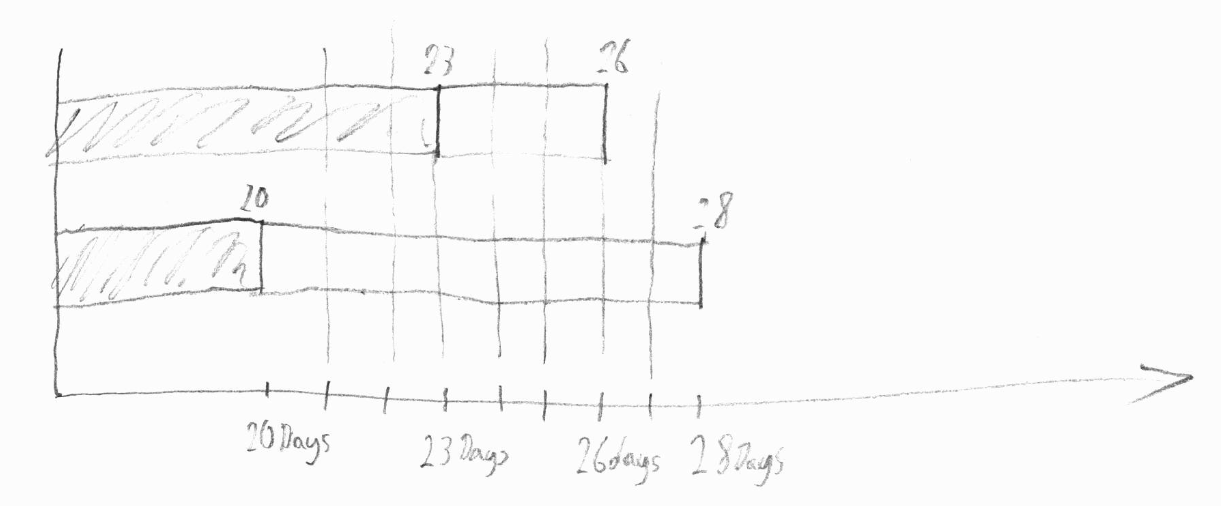 23 26
20 28
20 Days 23 Days 26 days 28 Days